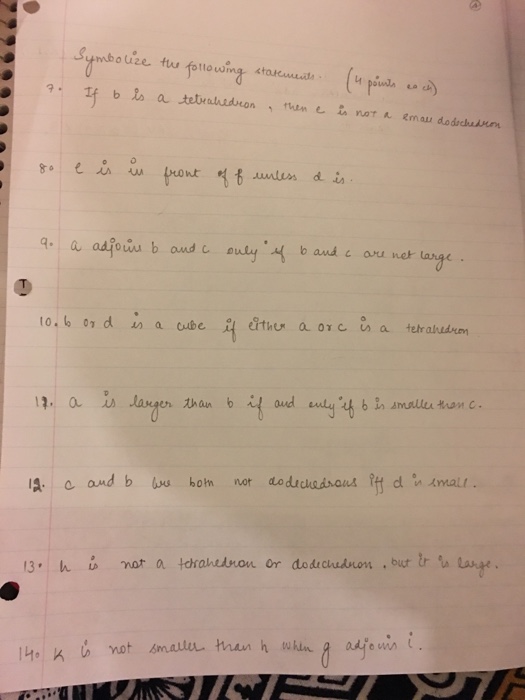 Symbolize the following statements. (4 points each)
7. If b is a tetrahedron, then e is not a small dodechedron
8. e is in front of f unless d is.
9. a adjoins b and c only if b and c are not large.
T
10. b or d is a cube if either a or c is a tetrahedron
11. a is larger than b if and only if b is smaller than c.
12. c and b are both not dodechedrons iff d is small.
13. h is not a tetrahedron or dodechedron, but it is large.
14. k is not smaller than h when g adjoins i.